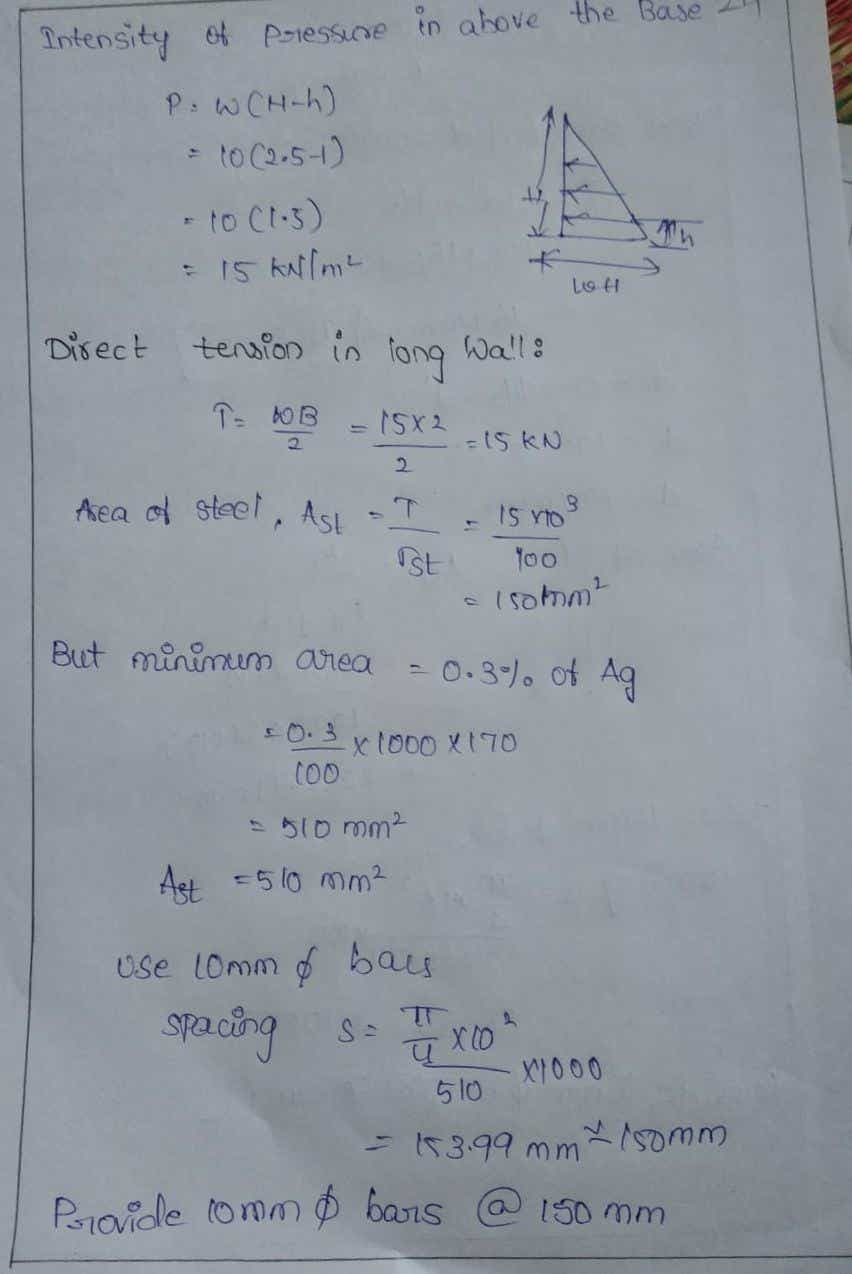 Intensity of pressure in above the Base
P = W(H-h)
= 10(2.5-1)
= 10(1.5)
= 15 kN/m²
H
h
WH
Direct tension in long Wall:
T = WB/2 = 15×2/2 = 15 KN
Area of steel, Ast = T/σst = 15×10³/100
= 150mm²
But minimum area = 0.3% of Ag
= 0.3/100 × 1000 × 170
= 510 mm²
Ast = 510 mm²
Use 10mm ϕ bars
spacing S = π/4 × 10²/510 × 1000
= 153.99 mm ≃ 150mm
Provide 10mm ϕ bars @ 150 mm